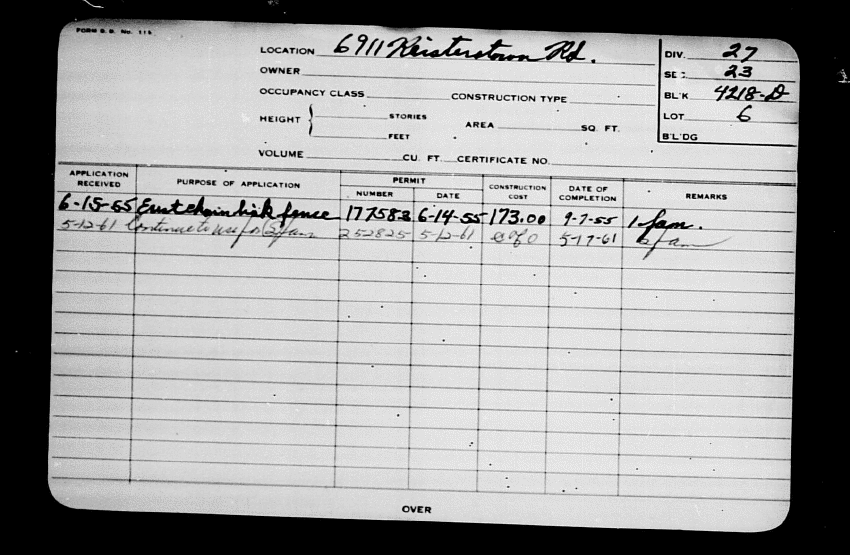 FORM B. B. No. 115
LOCATION 6911 Reisterstown Rd.
DIV. 27
OWNER
SEC. 23
OCCUPANCY CLASS CONSTRUCTION TYPE
BL'K 4218-D
HEIGHT } STORIES AREA SQ. FT.
LOT 6
FEET
B'L'DG
VOLUME CU. FT. CERTIFICATE NO.
APPLICATION RECEIVED PURPOSE OF APPLICATION PERMIT NUMBER DATE CONSTRUCTION COST DATE OF COMPLETION REMARKS
6-15-55 Erect chain link fence 177583 6-14-55 173.00 9-7-55 1 fam.
5-12-61 Continue to use for (2) fam 252825 5-12-61 C of O 5-17-61 2 fam
OVER